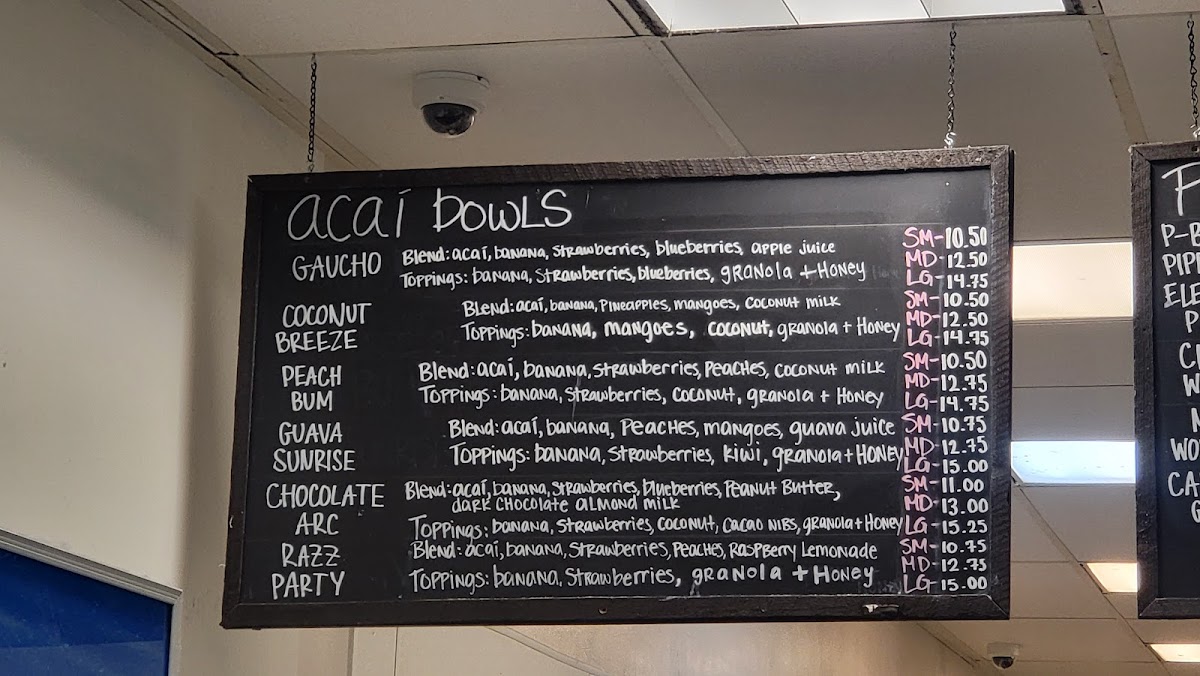 acaí bowls
GAUCHO
Blend: acaí, banana, strawberries, blueberries, apple juice
Toppings: banana, strawberries, blueberries, granola + Honey
SM-10.50
MD-12.50
LG-14.75
COCONUT BREEZE
Blend: acaí, banana, Pineapples, mangoes, coconut milk
Toppings: banana, mangoes, coconut, granola + Honey
SM-10.50
MD-12.50
LG-14.75
PEACH BUM
Blend: acaí, banana, strawberries, Peaches, coconut milk
Toppings: banana, strawberries, coconut, granola + Honey
SM-10.50
MD-12.75
LG-14.75
GUAVA SUNRISE
Blend: acaí, banana, Peaches, mangoes, guava juice
Toppings: banana, strawberries, kiwi, granola + Honey
SM-10.75
MD-12.75
LG-15.00
CHOCOLATE ARC
Blend: acaí, banana, strawberries, blueberries, Peanut Butter,
dark chocolate almond milk
Toppings: banana, strawberries, coconut, cacao nibs, granola + Honey
SM-11.00
MD-13.00
LG-15.25
RAZZ PARTY
Blend: acaí, banana, strawberries, Peaches, Raspberry Lemonade
Toppings: banana, strawberries, granola + Honey
SM-10.75
MD-12.75
LG-15.00